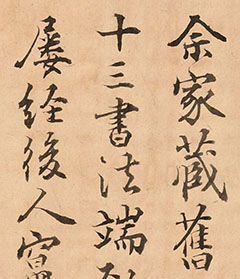 余家藏舊
十三書法端
屢經後人